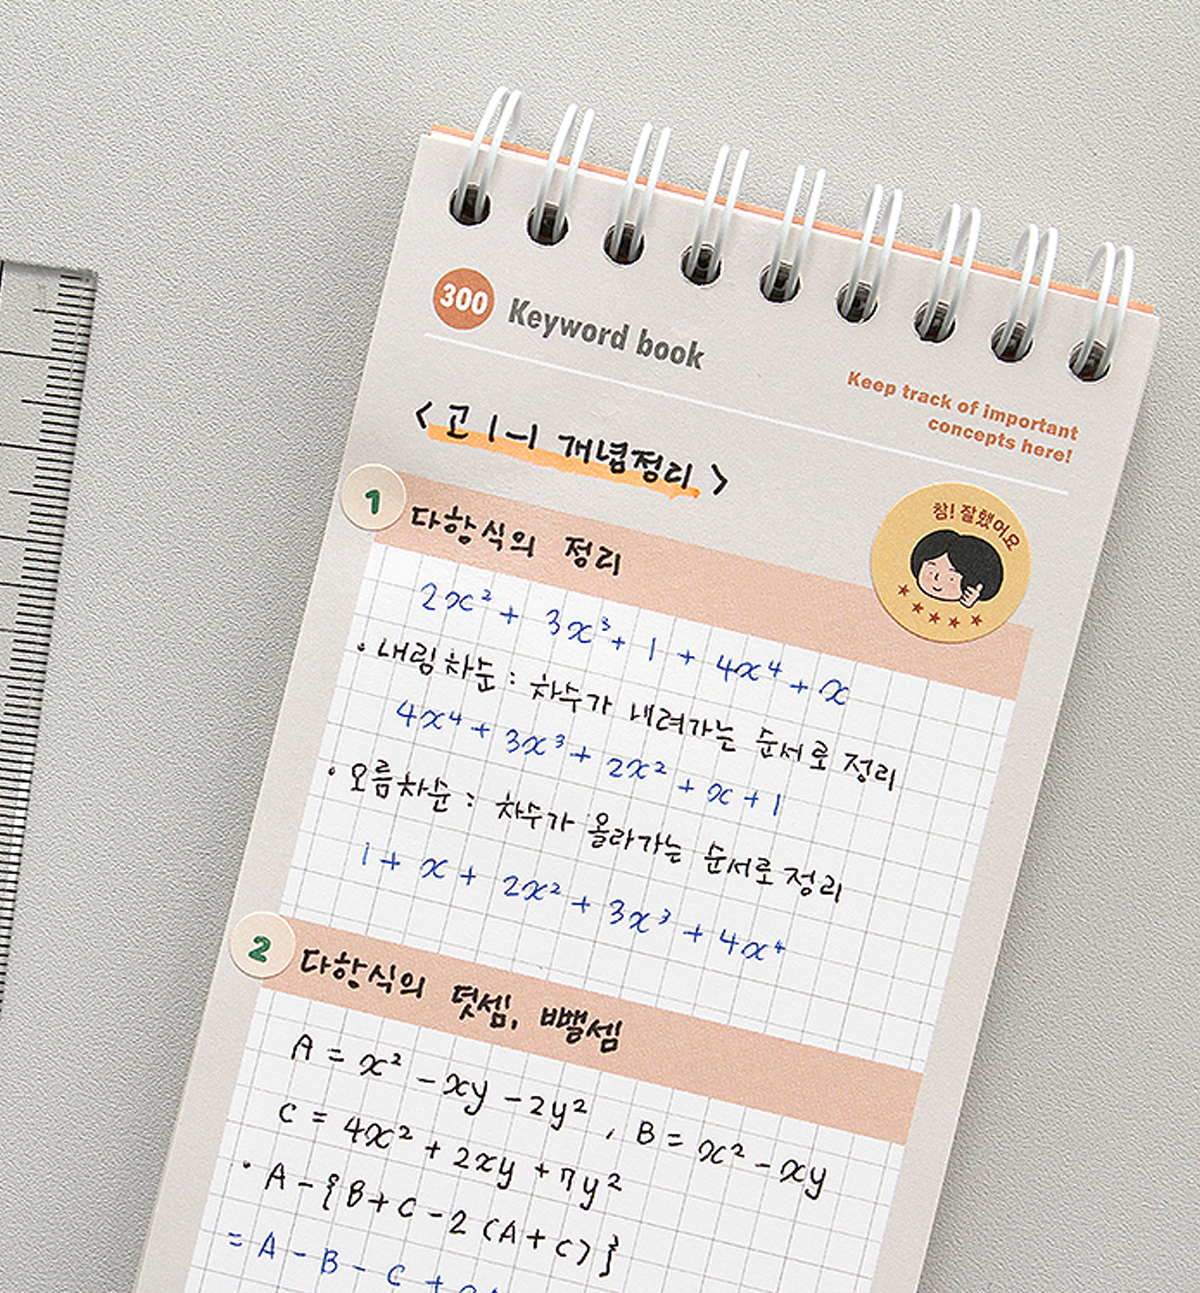 300 Keyword book
Keep track of important
concepts here!
< 고 1-1 개념정리 >
참! 잘했어요
1 다항식의 정리
2x² + 3x³ + 1 + 4x⁴ + x
· 내림차순 : 차수가 내려가는 순서로 정리
4x⁴ + 3x³ + 2x² + x + 1
· 오름차순 : 차수가 올라가는 순서로 정리
1 + x + 2x² + 3x³ + 4x⁴
2 다항식의 덧셈, 뺄셈
A = x² - xy - 2y² , B = x² - xy
C = 4x² + 2xy + 7y²
· A - {B + C - 2 (A + C) }
= A - B - C +